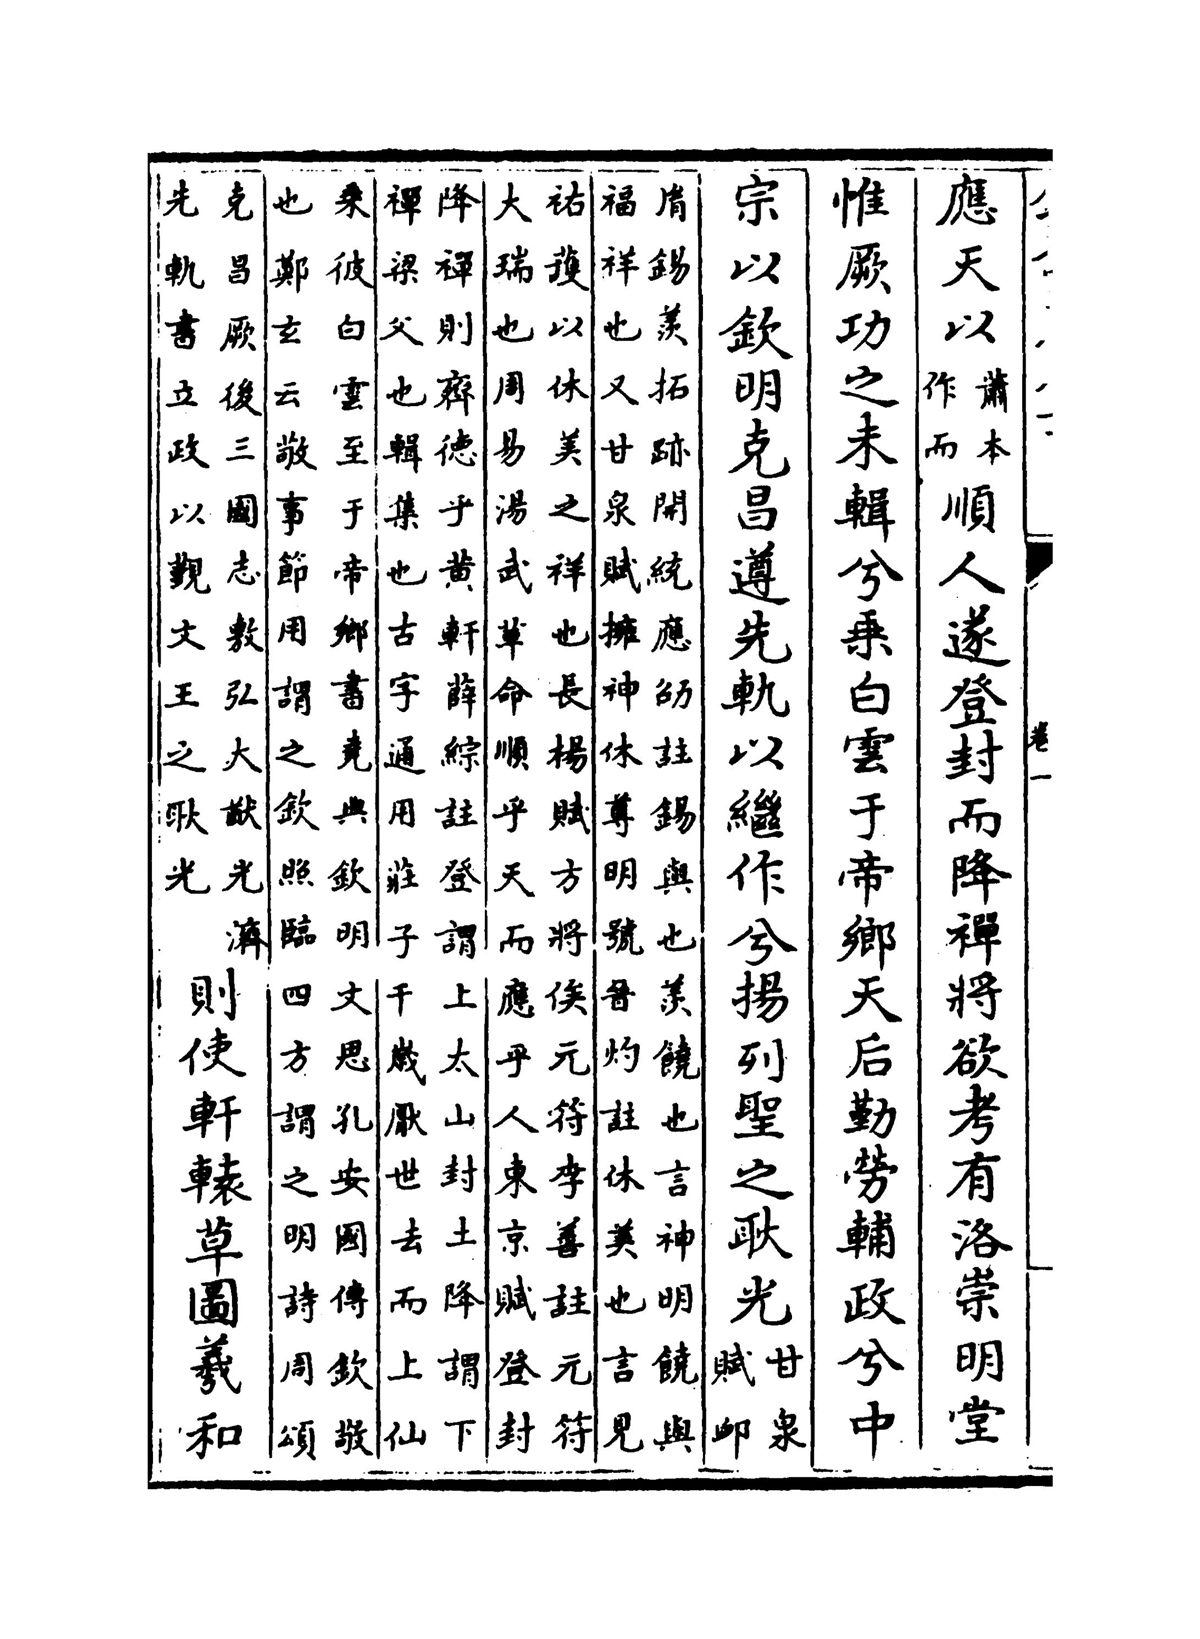 應天以蕭本作而順人遂登封而降禪將欲考有洛崇明堂
惟厥功之未輯兮乗白雲于帝鄉天后勤勞輔政兮中
宗以欽明克昌遵先軌以繼作兮揚列聖之耿光甘泉賦䘏
胤錫羨拓跡開統應劭註錫與也羨饒也言神明饒與
福祥也又甘泉賦擁神休尊明號晉灼註休美也言見
祐䕶以休美之祥也長楊賦方將俟元符李善註元符
大瑞也周易湯武革命順乎天而應乎人東京賦登封
降禪則齊德乎黄軒薛綜註登謂上太山封土降謂下
禪梁父也輯集也古字通用莊子千嵗厭世去而上仙
乗彼白雲至于帝鄉書堯典欽明文思孔安國傳欽敬
也鄭玄云敬事節用謂之欽照臨四方謂之明詩周頌
克昌厥後三國志敷弘大猷光濟
先軌書立政以覲文王之耿光
則使軒轅草圖羲和
卷一